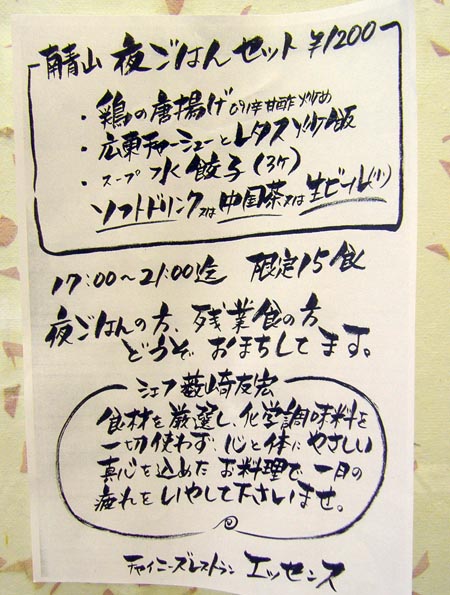 南青山 夜ごはんセット ¥1200
・鶏の唐揚げの辛甘酢炒め
・広東チャーシューとレタス炒飯
・スープ水餃子(3ケ)
ソフトドリンク又は中国茶又は生ビール(小)
17:00〜21:00迄 限定15食
夜ごはんの方、残業食の方
どうぞ おまちしてます。
シェフ 薮崎友宏
食材を厳選し、化学調味料を
一切使わず 心と体にやさしい
真心を込めたお料理で 一日の
疲れをいやして下さいませ。
チャイニーズレストラン エッセンス